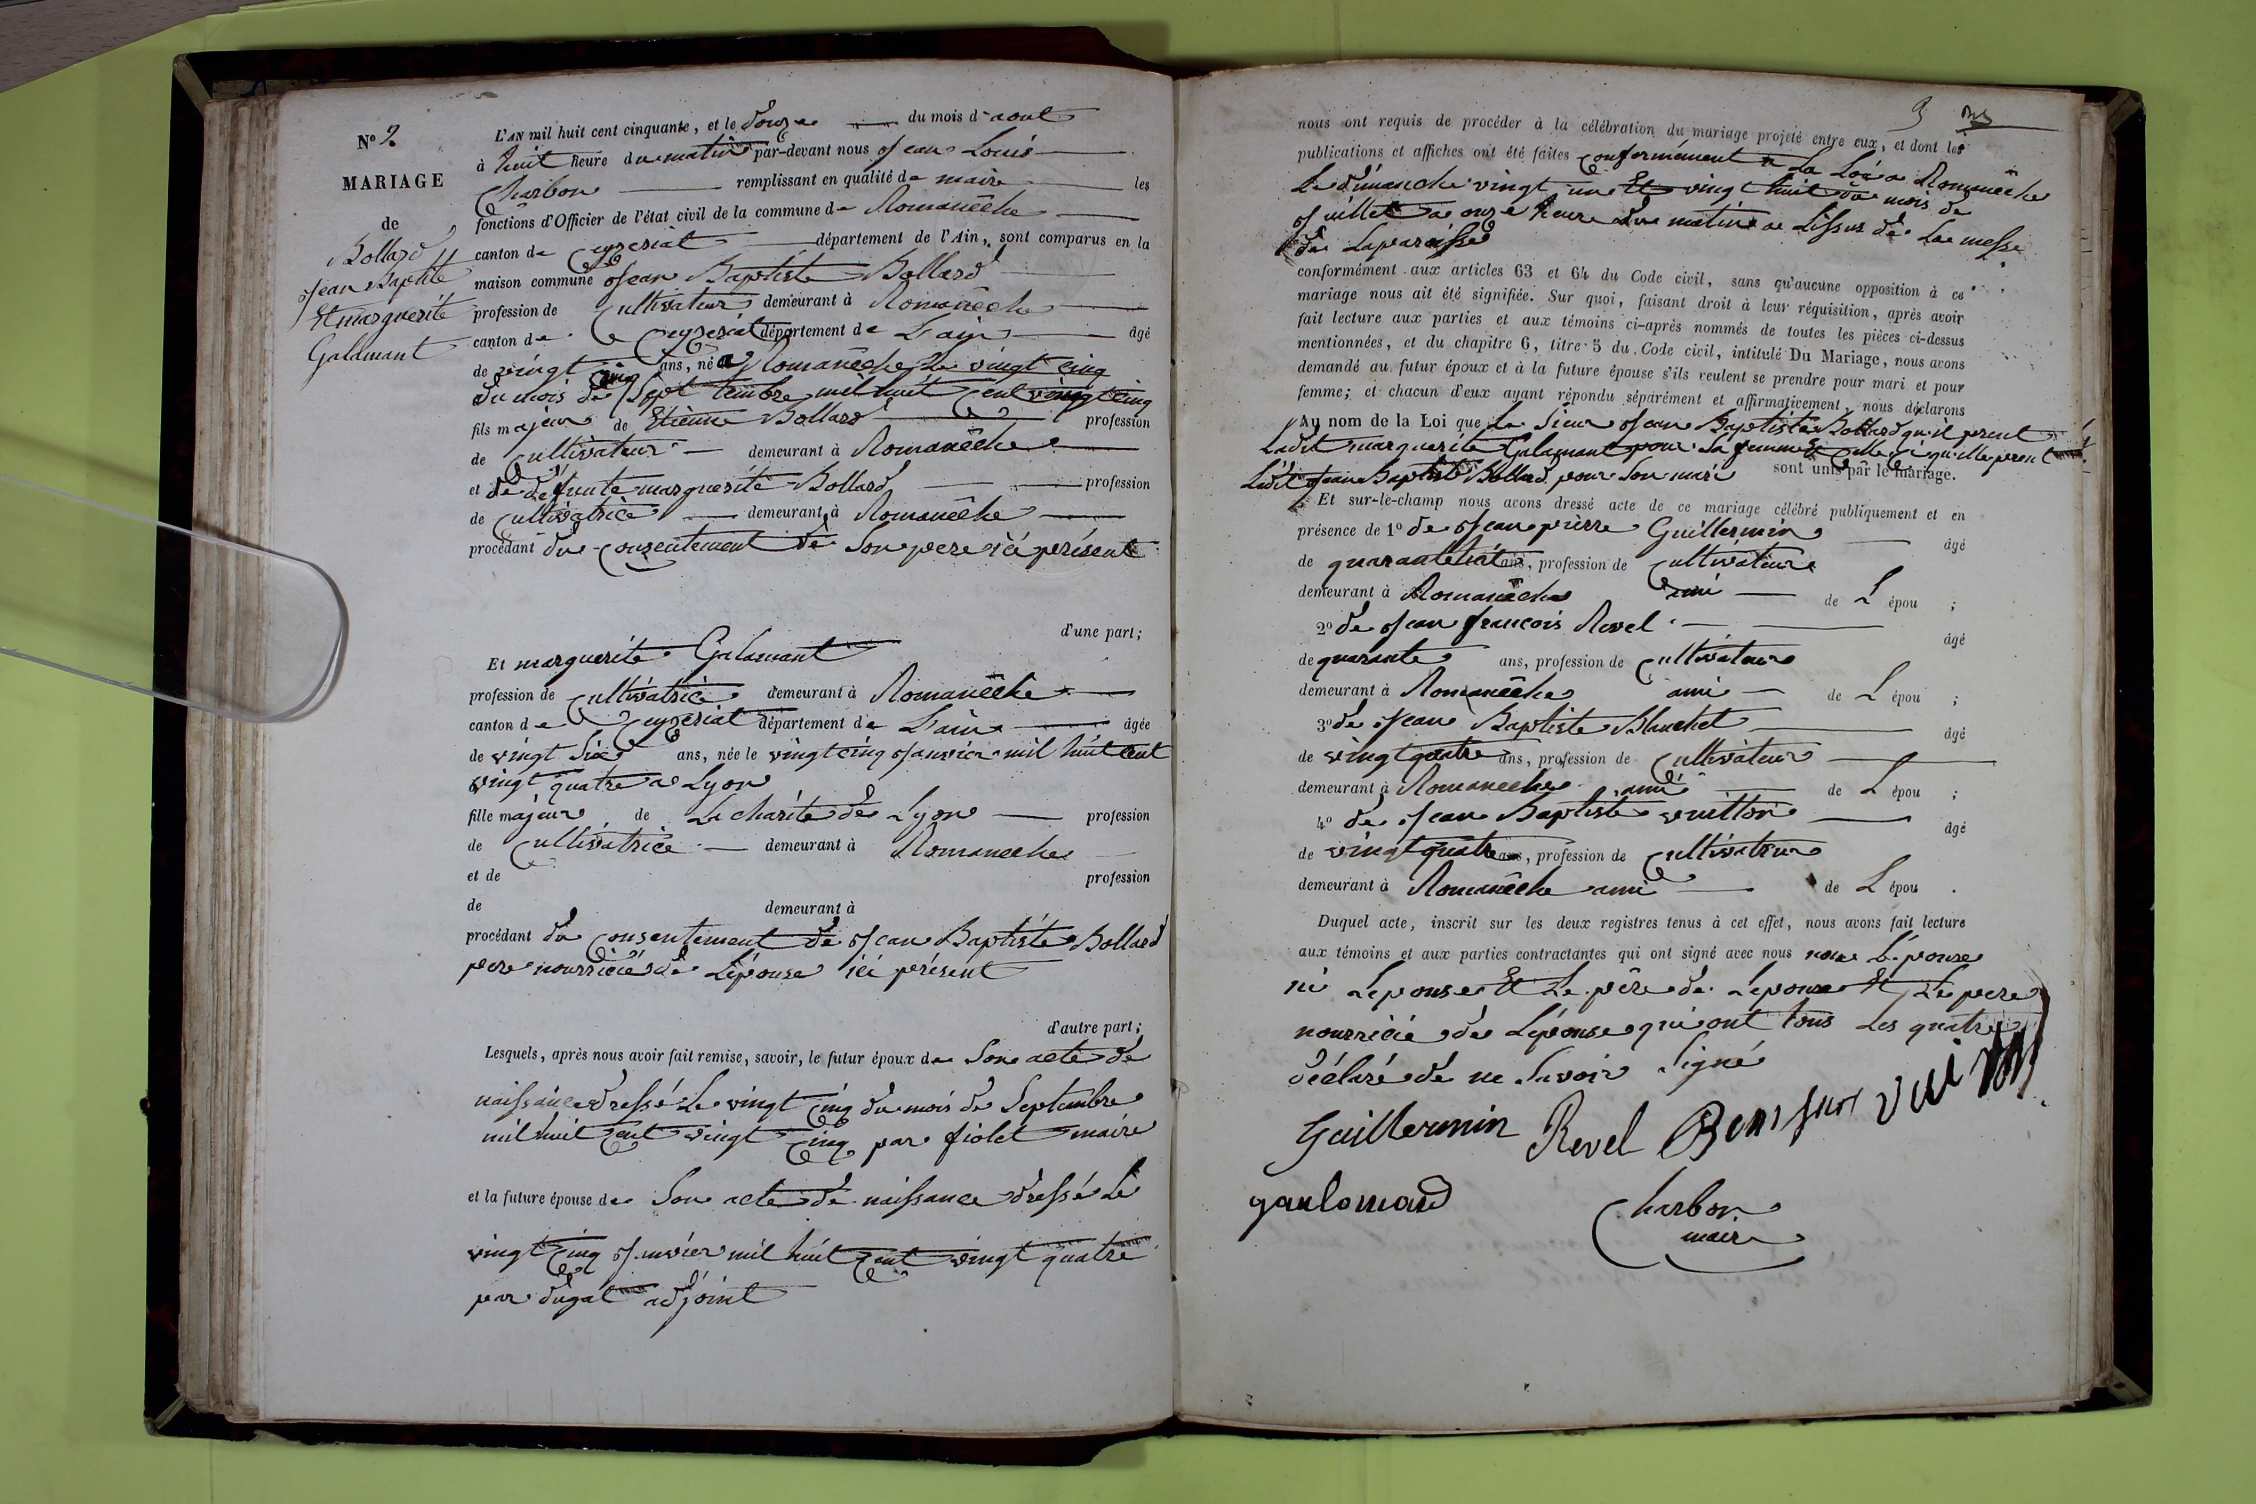 N° 2.
MARIAGE
de
Bollard
Jean Baptiste
Et marguerite
Galamant
L'AN mil huit cent cinquante, et le douze du mois d'aout
à huit heure du matin par-devant nous Jean Louis
Charbon remplissant en qualité de maire les
fonctions d'Officier de l'état civil de la commune de Romanêche
canton de Ceyzeriat département de l'Ain, sont comparus en la
maison commune Jean Baptiste Bollard
profession de Cultivateur demeurant à Romanêche
canton de Ceyzeriat département de L'ain âgé
de vingt cinq ans, né a Romanêche Le vingt cinq
du mois de Septembre mil huit Cent vingt cinq
fils majeur de Etienne Bollard profession
de Cultivateur demeurant à Romanêche
et de défunte marguerite Bollard profession
de Cultivatrice demeurant à Romanêche
procédant du Consentement de Son pere ici présent
d'une part;
Et marguerite Galamant
profession de Cultivatrice demeurant à Romanêche
canton de Ceyzeriat département de L'ain âgée
de vingt Six ans, née le vingt cinq Janvier mil huit Cent
vingt quatre a Lyon
fille majeur de La charité de Lyon profession
de Cultivatrice demeurant à Romaneche
et de profession
de demeurant à
procédant du Consentement de Jean Baptiste Bollard
pere nourricié de L'épouse ici présent
d'autre part;
Lesquels, après nous avoir fait remise, savoir, le futur époux de Son acte de
naissance dressé Le vingt Cinq du mois de Septembre
mil huit Cent vingt Cinq par fiolet maire
et la future épouse de Son acte de naissance dressé Le
vingt Cinq Janvier mil huit Cent vingt quatre
par dugat adjoint
3
nous ont requis de procéder à la célébration du mariage projeté entre eux, et dont les
publications et affiches ont été faites Conformément a La Loi a Romanêche
Le dimanche vingt un Et vingt huit du mois de
Juillet a onze heure du matin a Lissus de La messe
de Laparoisse
conformément aux articles 63 et 64 du Code civil, sans qu'aucune opposition à ce
mariage nous ait été signifiée. Sur quoi, faisant droit à leur réquisition, après avoir
fait lecture aux parties et aux témoins ci-après nommés de toutes les pièces ci-dessus
mentionnées, et du chapitre 6, titre 5 du Code civil, intitulé Du Mariage, nous avons
demandé au futur époux et à la future épouse s'ils veulent se prendre pour mari et pour
femme; et chacun d'eux ayant répondu séparément et affirmativement, nous déclarons
Au nom de la Loi que Le Sieur Jean Baptiste Bollard qu'il perent
Ladit marguerite Galamant pour Sa femme Et Celle Ci qu'elle perent
Ledit Jean Baptiste Bollard pour Son mari sont unis par le mariage.
Et sur-le-champ nous avons dressé acte de ce mariage célébré publiquement et en
présence de 1° de Jean pierre Guillermin âgé
de quarante huit ans, profession de Cultivateur
demeurant à Romanêche ami de L'épou ;
2° de Jean francois Revel âgé
de quarante ans, profession de Cultivateur
demeurant à Romanêche ami de L'épou ;
3° de Jean Baptiste Blanchet âgé
de vingt quatre ans, profession de Cultivateur
demeurant à Romaneche ami de L'épou ;
4° de Jean Baptiste vuitton âgé
de vingt quatre ans, profession de Cultivateur
demeurant à Romanêche ami de L'épou .
Duquel acte, inscrit sur les deux registres tenus à cet effet, nous avons fait lecture
aux témoins et aux parties contractantes qui ont signé avec nous non L'épouse
ni Lepouse Et Le père de Lepouse Et Le pere
nourricié de L'épouse qui ont tous Les quatre
déclaré de ne Savoir Signé
Guillermin Revel
gaulomard
Charbon
maire